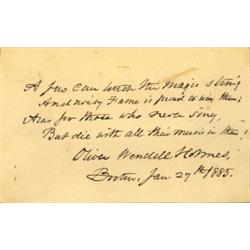 A few can touch the magic string
And noisy Fame is proud to win them;
Alas for those who never sing,
But die with all their music in them!
Oliver Wendell Holmes,
Boston, Jan 27th 1885.